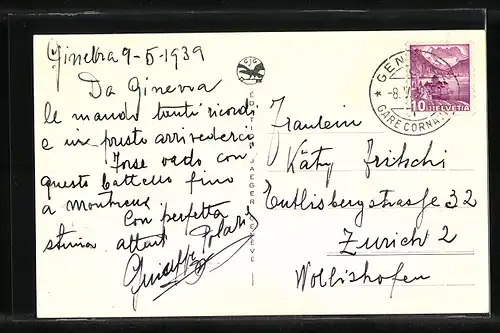 Ginebra 9-5-1939
Da Ginevra
le mando tanti ricordi
e un presto arrivederci
Forse vado con
questo battello fino
a Montreux
Con perfetta
stima
Giuseppe
EDITION JAEGER GENÈVE
GEN
-8.V
GARE CORNA
10 HELVETIA
Fraulein
Käty Fritschi
Entlisbergstraße 32
Zurich 2
Wollishofen